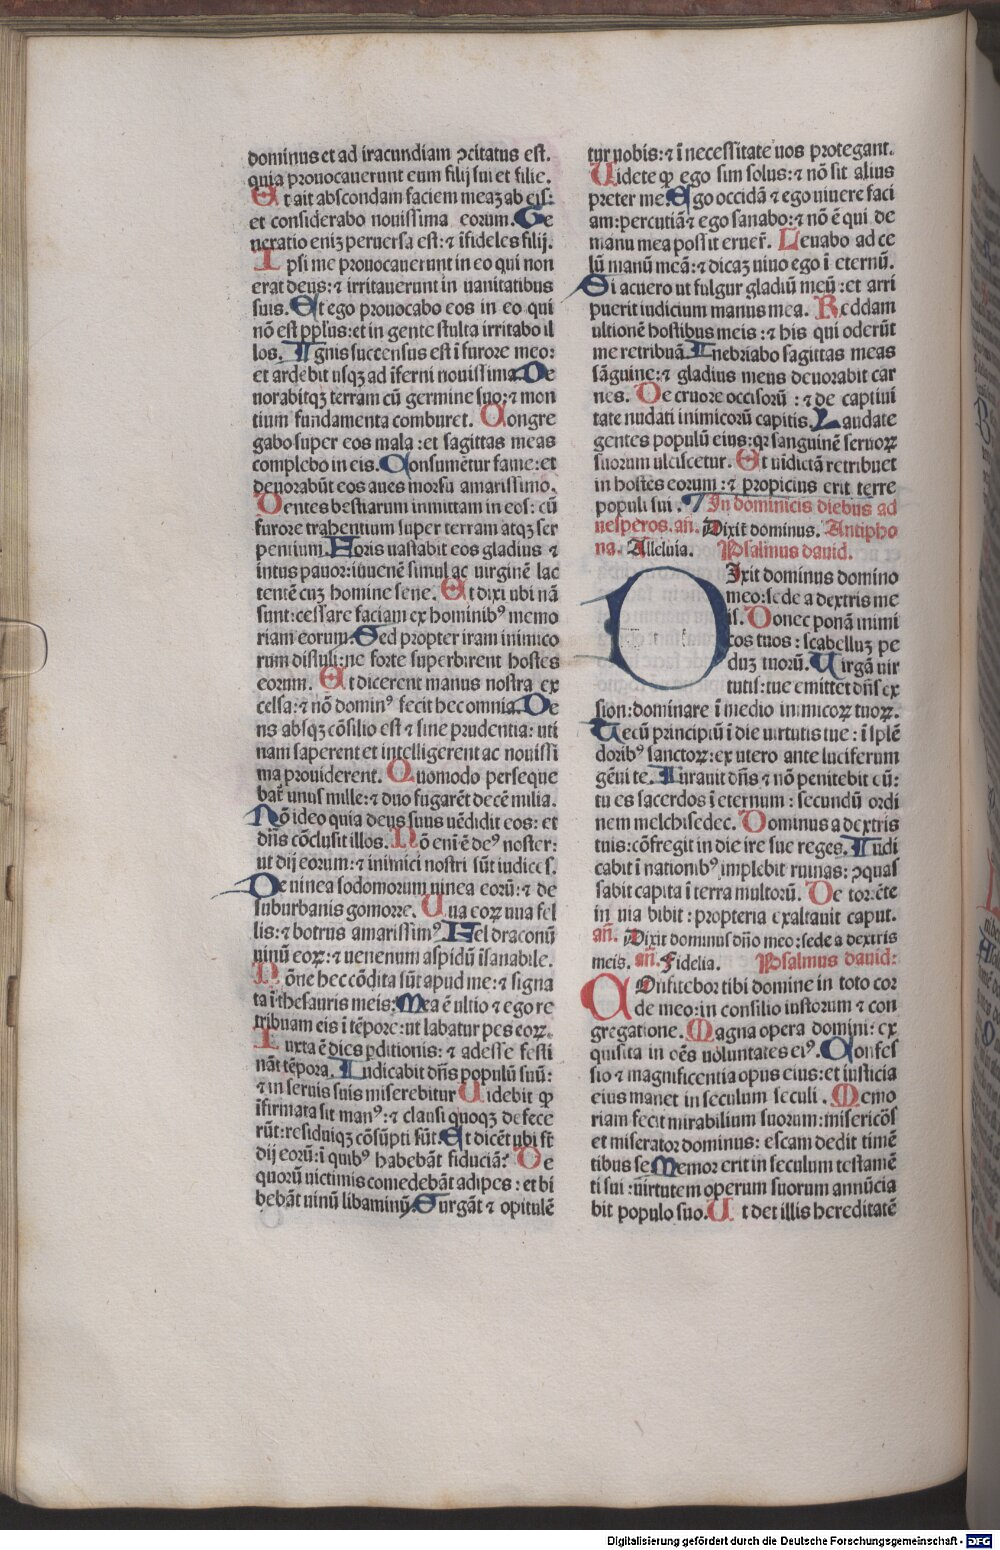 dominus et ad iracundiam ↄcitatus est.
quia prouocauerunt eum filij sui et filie.
Et ait abscondam faciem meaꝫ ab eis:
et considerabo nouissima eorum. Ge
neratio eniꝫ peruersa est: ⁊ ĩfideles filij.
Ipsi me prouocauerunt in eo qui non
erat deus: ⁊ irritauerunt in uanitatibus
suis. Et ego prouocabo eos in eo qui
nõ est ppľus: et in gente stulta irritabo il
los. Ignis succensus est ĩ furore meo:
et ardebit usqꝫ ad ĩferni nouissima. De
uorabitqꝫ terram cũ germine suo: ⁊ mon
tium fundamenta comburet. Congre
gabo super eos mala: et sagittas meas
complebo in eis. Consumẽtur fame: et
deuorabũt eos aues morsu amarissimo.
Dentes bestiarum inmittam in eos: cũ
furore trahentium super terram atqꝫ ser
pentium. Foris uastabit eos gladius ⁊
intus pauor: iuuenẽ simul ac uirginẽ lac
tentẽ cuꝫ homine sene. Et dixi ubi nã
sunt: cessare faciam ex hominibꝰ memo
riam eorum. Sed propter iram inimico
rum distuli: ne forte superbirent hostes
eorum. Et dicerent manus nostra ex
celsa: ⁊ nõ dominꝰ fecit hec omnia. Ge
ns absqꝫ cõsilio est ⁊ sine prudentia: uti
nam saperent et intelligerent ac nouissi
ma prouiderent. Quomodo perseque
bat᷑ unus mille: ⁊ duo fugarẽt decẽ milia.
Nõ ideo quia deus suus uẽdidit eos: et
dñs cõclusit illos. Nõ eni ẽ deꝰ noster:
ut dij eorum: ⁊ inimici nostri sũt iudices.
De uinea sodomorum uinea eorũ: ⁊ de
suburbanis gomorre. Uua eoꝝ uua fel
lis: ⁊ botrus amarissimꝰ. Fel draconũ
uinũ eoꝝ: ⁊ uenenum aspidũ ĩsanabile.
Nõne hec cõdita sũt apud me: ⁊ signa
ta ĩ thesauris meis. Mea ẽ ultio ⁊ ego re
tribuam eis ĩ tẽpore: ut labatur pes eoꝝ.
Iuxta ẽ dies ꝑditionis: ⁊ adesse festi
nãt tẽpora. Iudicabit dñs populũ suũ:
⁊ in seruis suis miserebitur. Uidebit ꝙ
ĩfirmata sit manꝰ: ⁊ clausi quoqꝫ defece
rũt: residuiqꝫ cõsũpti sũt. Et dicẽt ubi st̃
dij eorũ: ĩ quibꝰ habebãt fiduciã? De
quorũ uictimis comedebãt adipes: et bi
bebãt uinũ libaminũ. Surgãt ⁊ opitulẽ
tur uobis: ⁊ ĩ necessitate uos protegant.
Uidete ꝙ ego sum solus: ⁊ nõ sit alius
preter me. Ego occidã ⁊ ego uiuere faci
am: percutiã ⁊ ego sanabo: ⁊ nõ ẽ qui de
manu mea possit eruer̃. Leuabo ad ce
lũ manũ meã: ⁊ dicaꝫ uiuo ego ĩ eternũ.
Si acuero ut fulgur gladiũ meũ: et arri
puerit iudicium manus mea. Reddam
ultionẽ hostibus meis: ⁊ his qui oderũt
me retribuã. Inebriabo sagittas meas
sãguine: ⁊ gladius meus deuorabit car
nes. De cruore occisorũ: ⁊ de captiui
tate nudati inimicorũ capitis. Laudate
gentes populũ eius: qꝛ sanguinẽ seruoꝝ
suorum ulciscetur. Et uĩdictã retribuet
in hostes eorum: ⁊ propicius erit terre
populi sui. In dominicis diebus ad
uesperos. añ. Dixit dominus. Antipho
na. Alleluia. Psalmus dauid.
Dixit dominus domino
meo: sede a dextris me
is. Donec ponã inimi
cos tuos: scabelluꝫ pe
duꝫ tuorũ. Uirgã uir
tutis: tue emittet dñs ex
sion: dominare ĩ medio inimicoꝝ tuoꝝ.
Tecũ principiũ ĩ die uirtutis tue: ĩ splẽ
doribꝰ sanctoꝝ: ex utero ante luciferum
gẽui te. Iurauit dñs ⁊ nõ penitebit eũ:
tu es sacerdos ĩ eternum: secundũ ordi
nem melchisedec. Dominus a dextris
tuis: cõfregit in die ire sue reges. Iudi
cabit ĩ nationibꝰ implebit ruinas: ↄquas
sabit capita ĩ terra multorũ. De torẽte
in uia bibit: propteria exaltauit caput.
añ. Dixit dominus dño meo: sede a dextris
meis. añ. Fidelia. Psalmus dauid:
COnfitebor tibi domine in toto cor
de meo: in consilio iustorum ⁊ con
gregatione. Magna opera domini: ex
quisita in oẽs uoluntates eiꝰ. Confes
sio ⁊ magnificentia opus eius: et iusticia
eius manet in seculum seculi. Memo
riam fecit mirabilium suorum: misericõs
et miserator dominus: escam dedit timẽ
tibus se. Memor erit in seculum testamẽ
ti sui: uirtutem operum suorum annũcia
bit populo suo. Ut det illis hereditatẽ
Digitalisierung gefördert durch die Deutsche Forschungsgemeinschaft - DFG